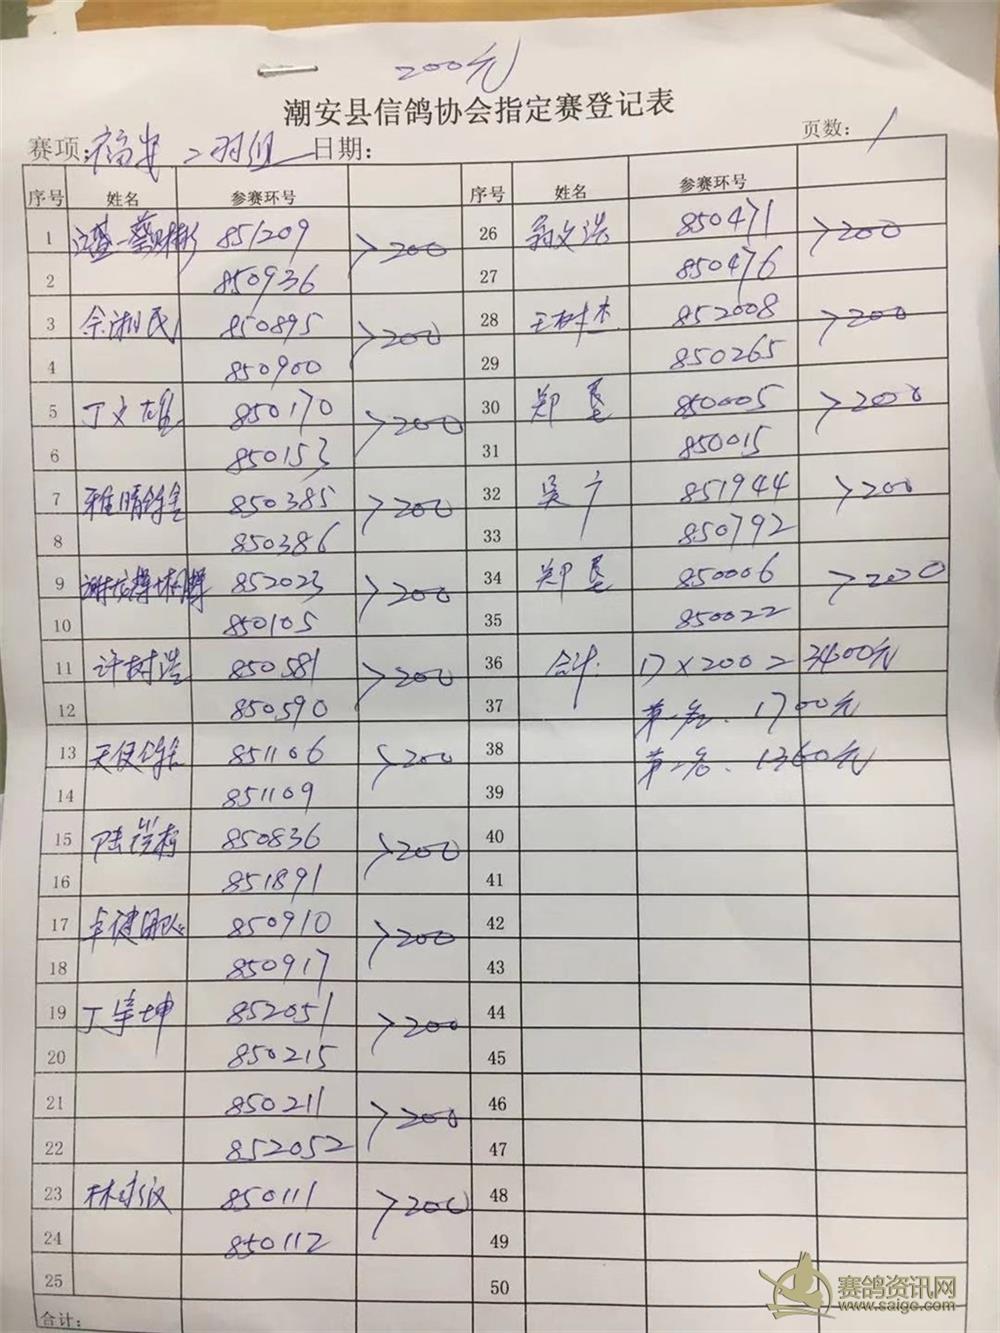 200元
潮安县信鸽协会指定赛登记表
赛项: 福安 二羽组 日期: 页数: 1
序号 姓名 参赛环号 序号 姓名 参赛环号
1 851209 >200 26 850471 >200
2 850936 27 850476
3 余湘民 850895 >200 28 王树杰 852008 >200
4 850900 29 850265
5 丁文雄 850170 >200 30 郑 850005 >200
6 850153 31 850015
7 雅晴 850385 >200 32 吴广 851944 >200
8 850386 33 850792
9 852023 >200 34 郑 850006 >200
10 850105 35 850022
11 许树浩 850581 >200 36 合计: 17×200=3400元
12 850590 37 第一名、1700元
13 天使 851106 >200 38 第二名、1360元
14 851109 39
15 陆 850836 >200 40
16 851891 41
17 卓健团队 850910 >200 42
18 850917 43
19 丁 坤 852051 >200 44
20 850215 45
21 850211 >200 46
22 852052 47
23 林 850111 >200 48
24 850112 49
25 50
合计:
赛鸽资讯网
www.saige.com